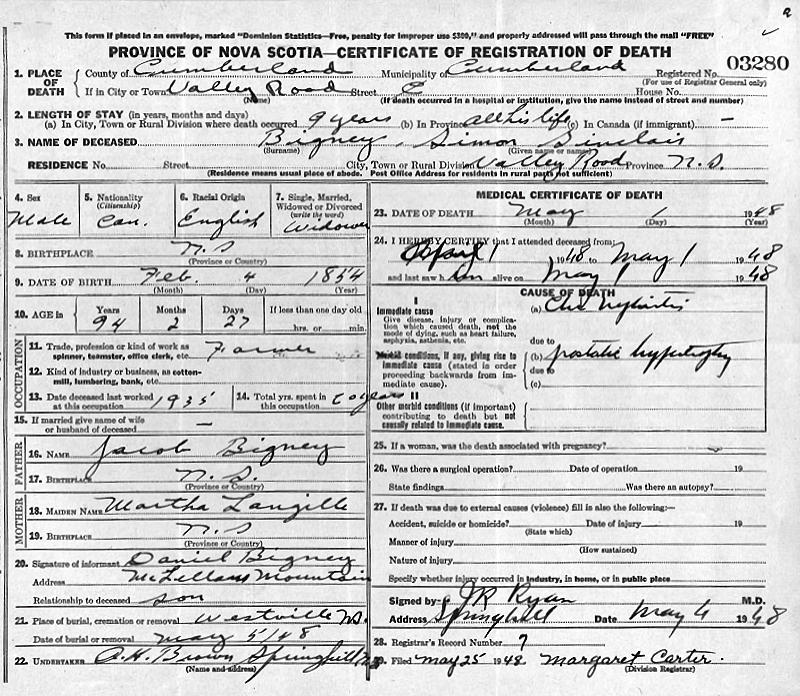 This form if placed in an envelope, marked "Dominion Statistics—Free, penalty for improper use $300," and properly addressed will pass through the mail "FREE"
PROVINCE OF NOVA SCOTIA—CERTIFICATE OF REGISTRATION OF DEATH
03280
1. PLACE OF DEATH County of Cumberland Municipality of Cumberland Registered No.
(For use of Registrar General only)
If in City or Town Valley Road Street House No.
(Name) (If death occurred in a hospital or institution, give the name instead of street and number)
2. LENGTH OF STAY (in years, months and days)
(a) In City, Town or Rural Division where death occurred 9 years (b) In Province all his life (c) In Canada (if immigrant) —
3. NAME OF DECEASED Bigney, Simon Sinclair
(Surname) (Given name or names)
RESIDENCE No. Street City, Town or Rural Division Valley Road Province N.S.
(Residence means usual place of abode. Post Office Address for residents in rural parts not sufficient)
4. Sex Male
5. Nationality (Citizenship) Can.
6. Racial Origin English
7. Single, Married, Widowed or Divorced (write the word) Widower
8. BIRTHPLACE N.S
(Province or Country)
9. DATE OF BIRTH Feb. 4 1854
(Month) (Day) (Year)
10. AGE in Years 94 Months 2 Days 27 If less than one day old hrs. or min.
OCCUPATION
11. Trade, profession or kind of work as spinner, teamster, office clerk, etc. Farmer
12. Kind of industry or business, as cotton-mill, lumbering, bank, etc.
13. Date deceased last worked at this occupation 1935
14. Total yrs. spent in this occupation 60 years
15. If married give name of wife or husband of deceased —
FATHER
16. NAME Jacob Bigney
17. BIRTHPLACE N.S.
(Province or Country)
MOTHER
18. MAIDEN NAME Martha Langille
19. BIRTHPLACE N.S
(Province or Country)
20. Signature of informant Daniel Bigney
Address McLellans Mountain
Relationship to deceased son
21. Place of burial, cremation or removal Westville N.S.
Date of burial or removal May 5/48
22. UNDERTAKER A.H. Brown Springhill N.S.
(Name and address)
MEDICAL CERTIFICATE OF DEATH
23. DATE OF DEATH May 1 1948
(Month) (Day) (Year)
24. I HEREBY CERTIFY that I attended deceased from
April 1 1948 to May 1 1948
and last saw him alive on May 1 1948
CAUSE OF DEATH
I
Immediate cause
Give disease, injury or complication which caused death, not the mode of dying, such as heart failure, asphyxia, asthenia, etc.
(a) Chr Nephritis
due to
Morbid conditions, if any, giving rise to immediate cause (stated in order proceeding backwards from immediate cause)
(b) prostatic hypertrophy
due to
(c)
II
Other morbid conditions (if important) contributing to death but not causally related to immediate cause.
25. If a woman, was the death associated with pregnancy?
26. Was there a surgical operation? Date of operation 19
State findings Was there an autopsy?
27. If death was due to external causes (violence) fill in also the following:—
Accident, suicide or homicide? Date of injury 19
(State which)
Manner of injury
(How sustained)
Nature of injury
Specify whether injury occurred in industry, in home, or in public place
Signed by JR Ryan M.D.
Address Springhill Date May 4 1948
28. Registrar's Record Number 7
29. Filed May 25 1948 Margaret Carter.
(Division Registrar)